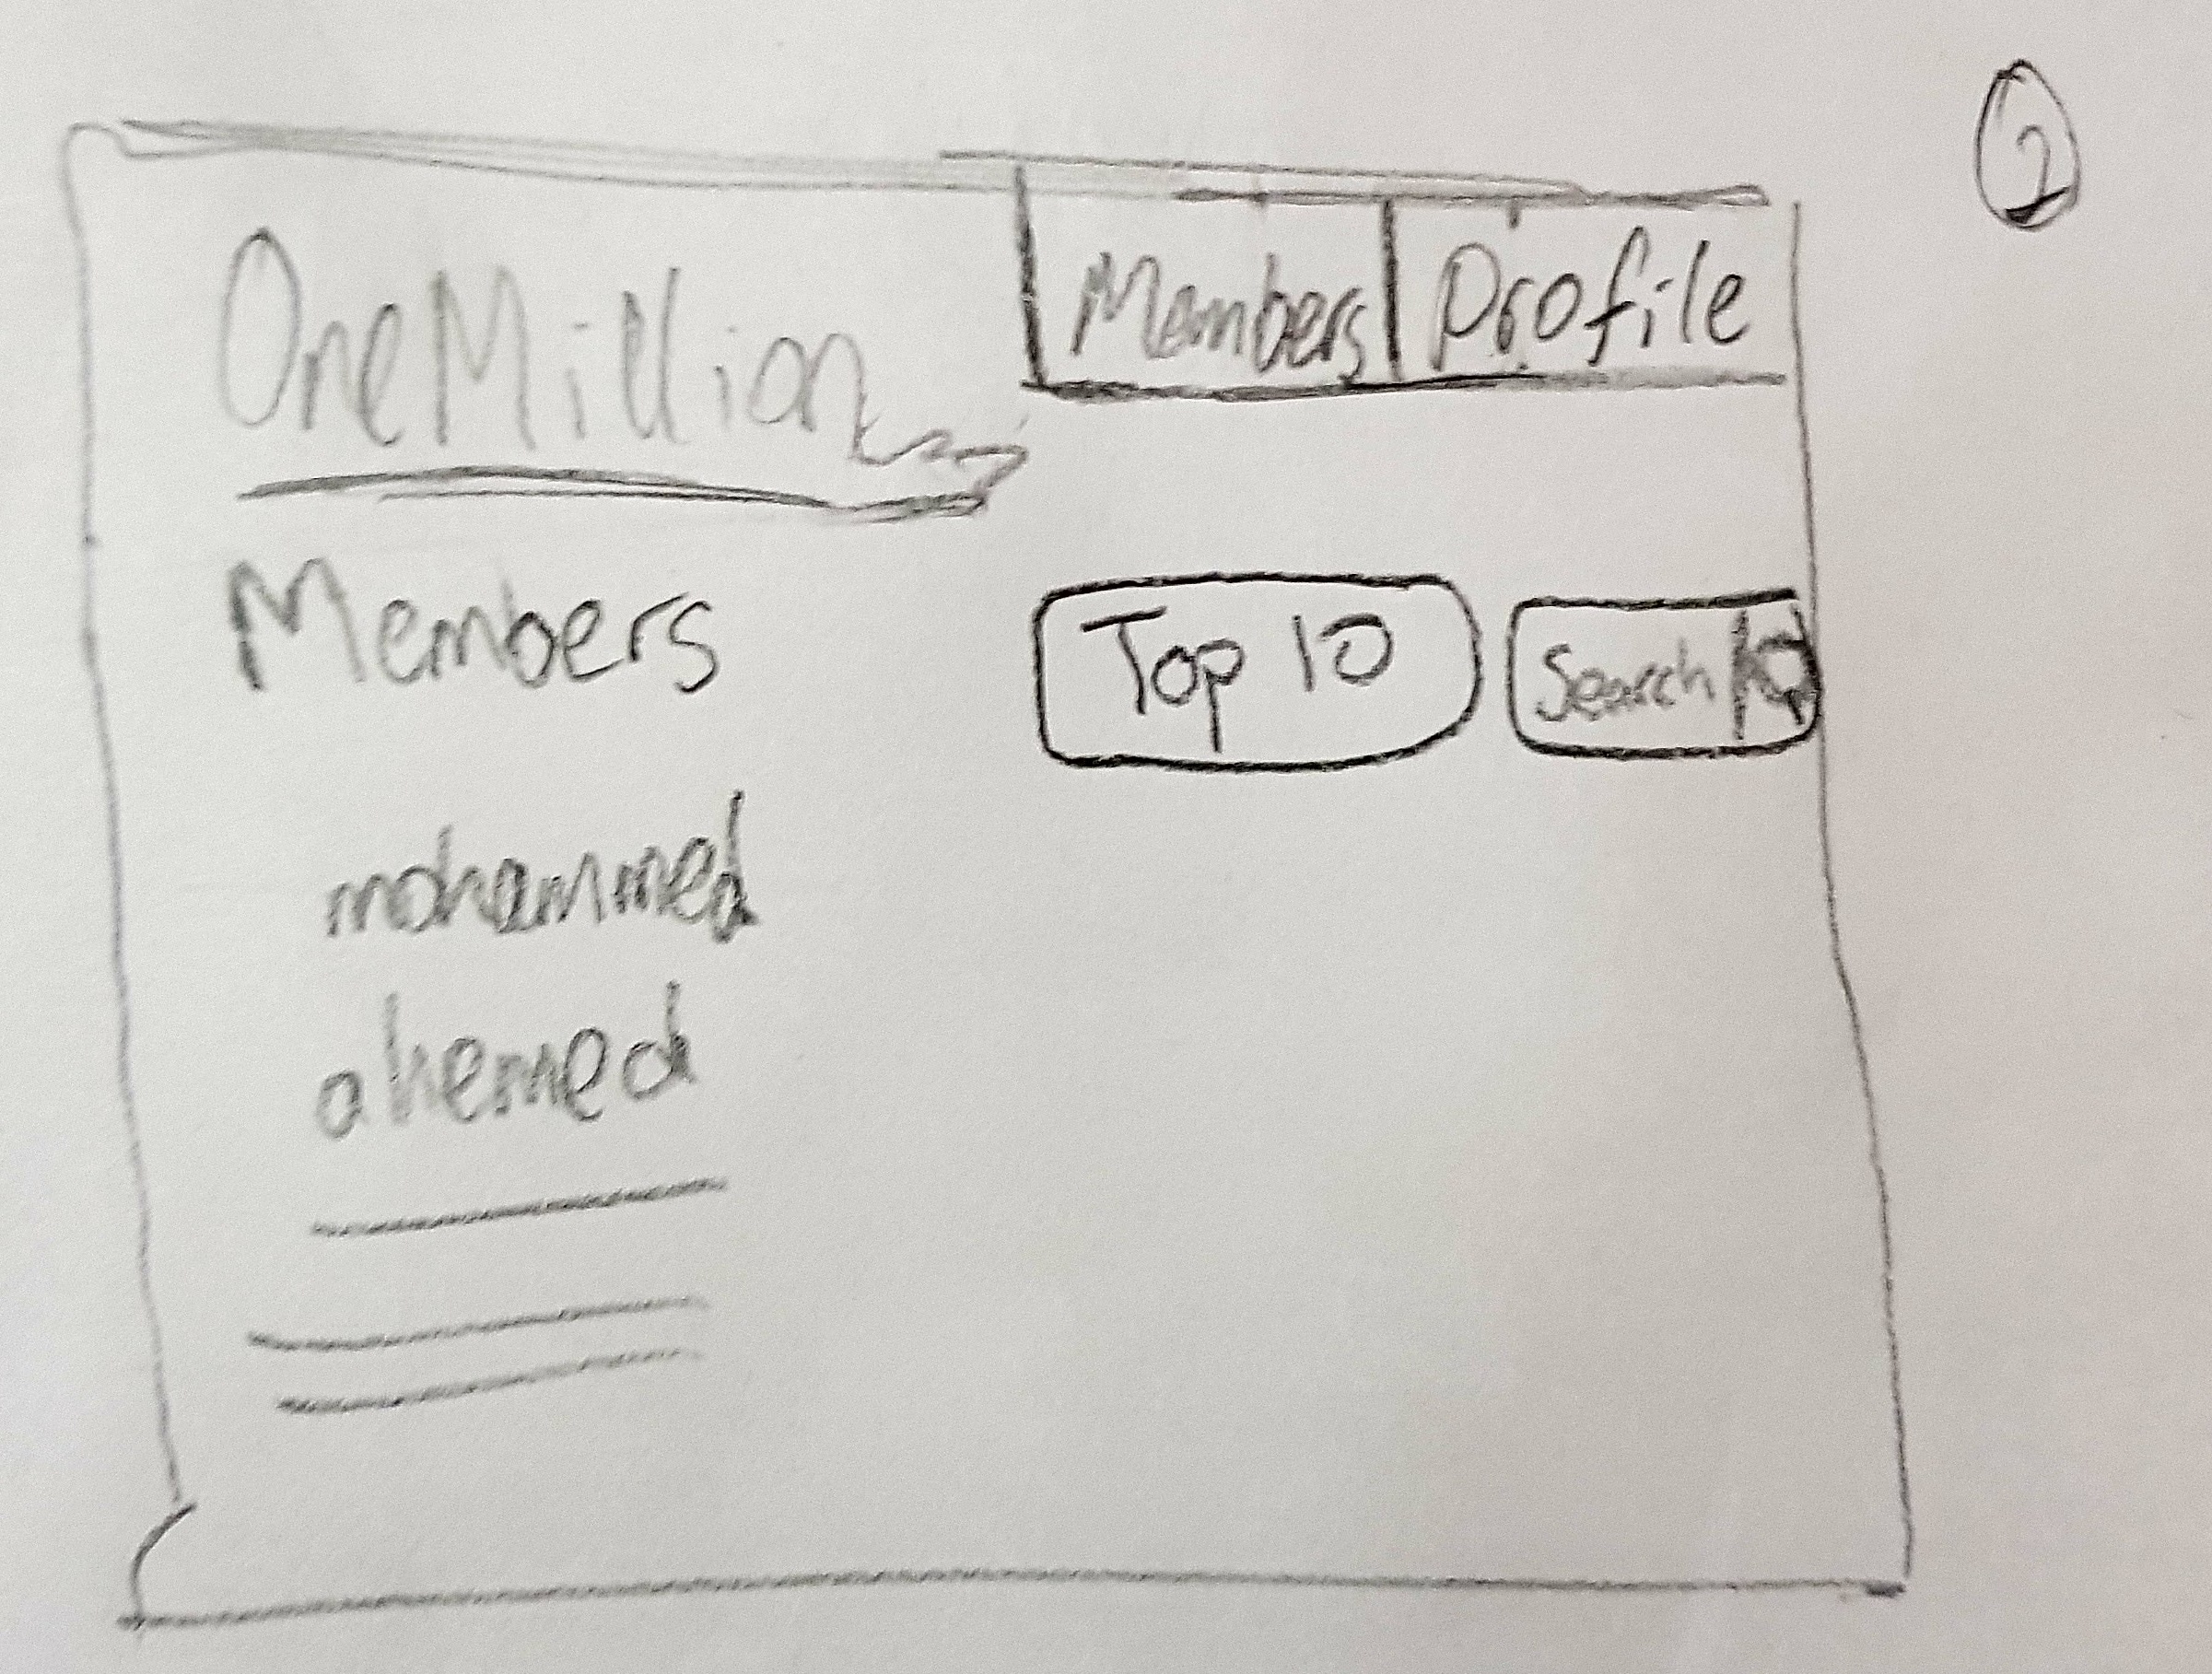 2
OneMillion
Members
Profile
Members
Top 10
Search
mohammed
ahemed